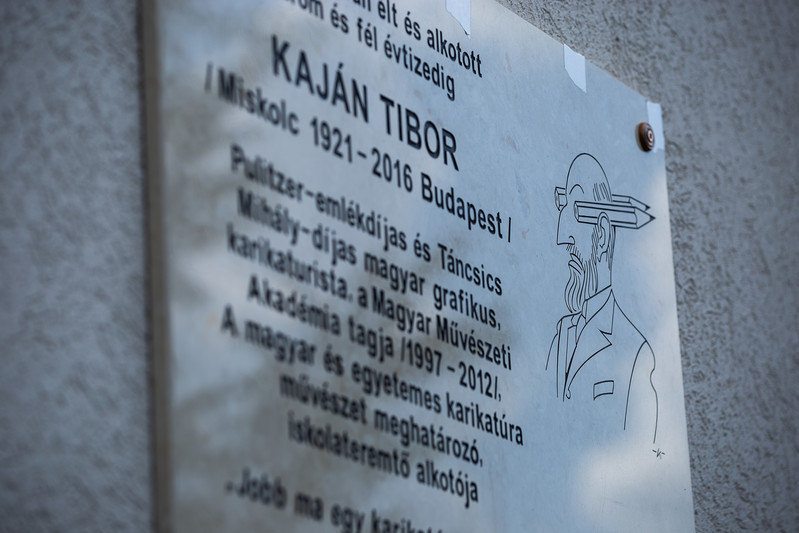 elt és alkotott
és fél évtizedig
KAJÁN TIBOR
/ Miskolc 1921-2016 Budapest /
Pulitzer-emlékdíjas és Táncsics
Mihály-díjas magyar grafikus,
karikaturista, a Magyar Művészeti
Akadémia tagja /1997-2012/,
A magyar és egyetemes karikatúra
művészet meghatározó,
iskolateremtő alkotója
„Jobb ma egy